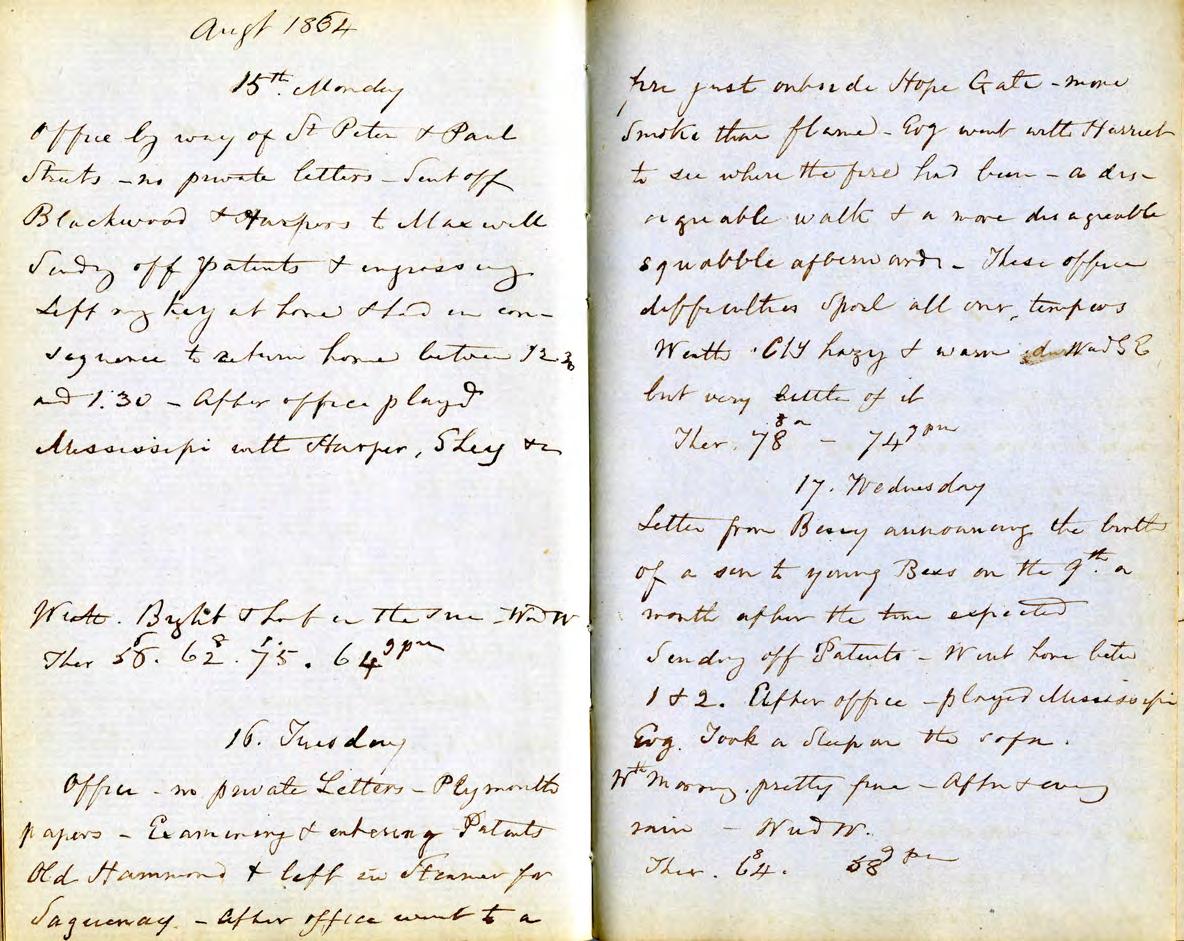 Augt 1864
15th. Monday
Office by way of St Peter & Paul
Streets - no private letters - Sent off
Blackwood & Harpers to Maxwell
Sendg off Patents & engrossing
Left my key at home & had in con-
sequence to return home between 12.30
and 1.30 - After office played
Mississipi with Harper, Shey &c
Weath. Bright & hot in the sun - Wnd W
Ther 56. 62 8. 75 1. 64 9pm
16. Tuesday
Office - no private Letters - Plymouth
papers - Examining & entering Patents
Old Hammond & left in Steamer for
Saguenay. - After office went to a
fire just outside Hope Gate - more
Smoke than flame - Evg went with Harriet
to see where the fire had been - a dis-
agreeable walk & a more disagreeable
squabble afterwards - These office
difficulties spoil all our tempers
Weath. Cly hazy & warm Wnd SE
but very little of it
Ther. 78 8a - 74 9pm
17. Wednesday
Letter from Bessy announcing the birth
of a son to young Bess on the 9th. a
month after the time expected
Sendng off Patents - Went home betw
1 & 2. After office - played Mississipi
Evg. Took a Sleep on the sofa.
Wth Morng. pretty fine - Aftn & eveng
rain - Wnd W.
Ther. 64 8. 58 9pm